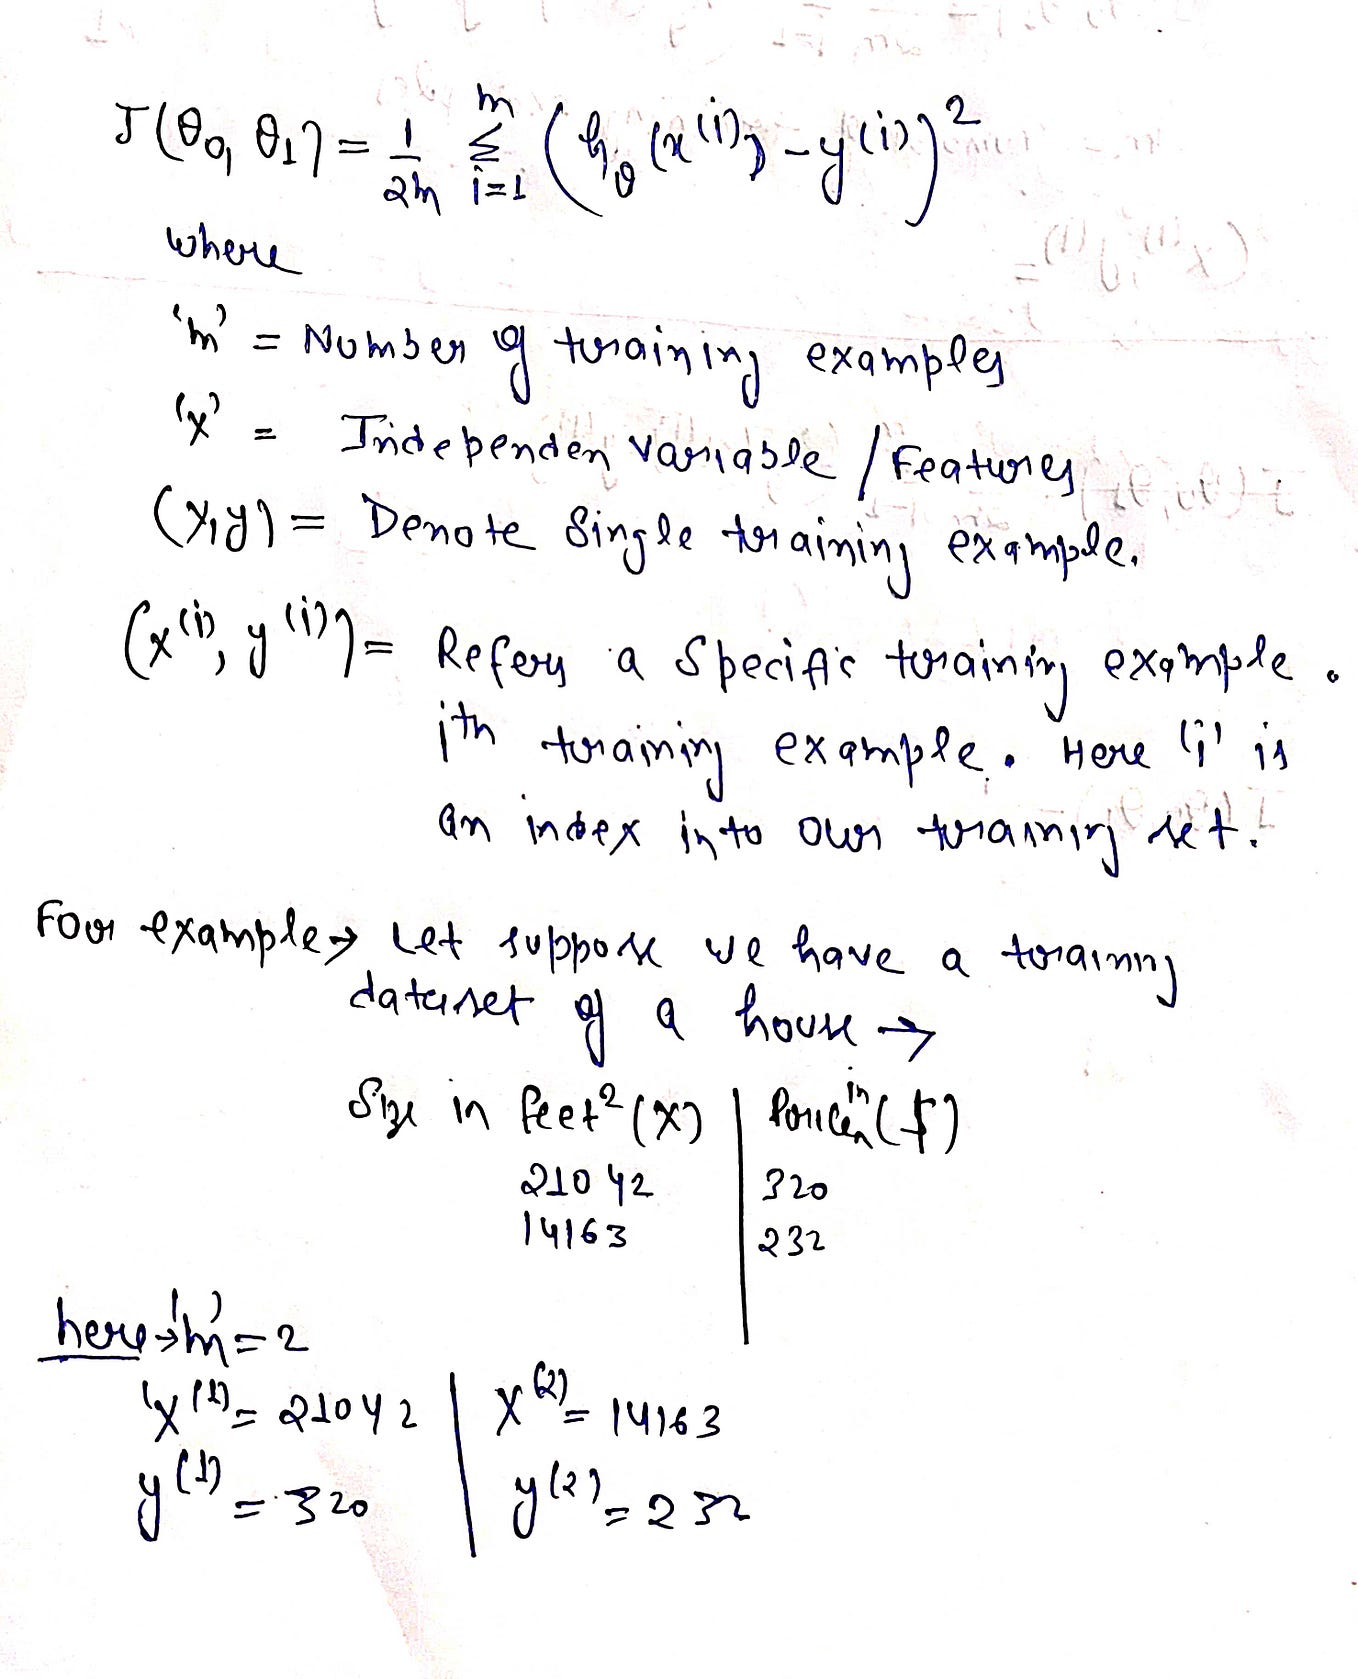 J(θ₀, θ₁) = 1/2m Σ i=1 m (hθ(x⁽ⁱ⁾) - y⁽ⁱ⁾)²
where
'm' = Number of training examples
'x' = Independen variable / Features
(x,y) = Denote Single training example.
(x⁽ⁱ⁾, y⁽ⁱ⁾) = Refers a Specific training example.
ith training example. Here 'i' is
an index into our training set.
For example → Let suppose we have a training
dataset of a house →
Size in feet² (x) | Price in ($)
21042 | 320
14163 | 232
here → 'm' = 2
'x⁽¹⁾ = 21042 | x⁽²⁾ = 14163
y⁽¹⁾ = 320 | y⁽²⁾ = 232